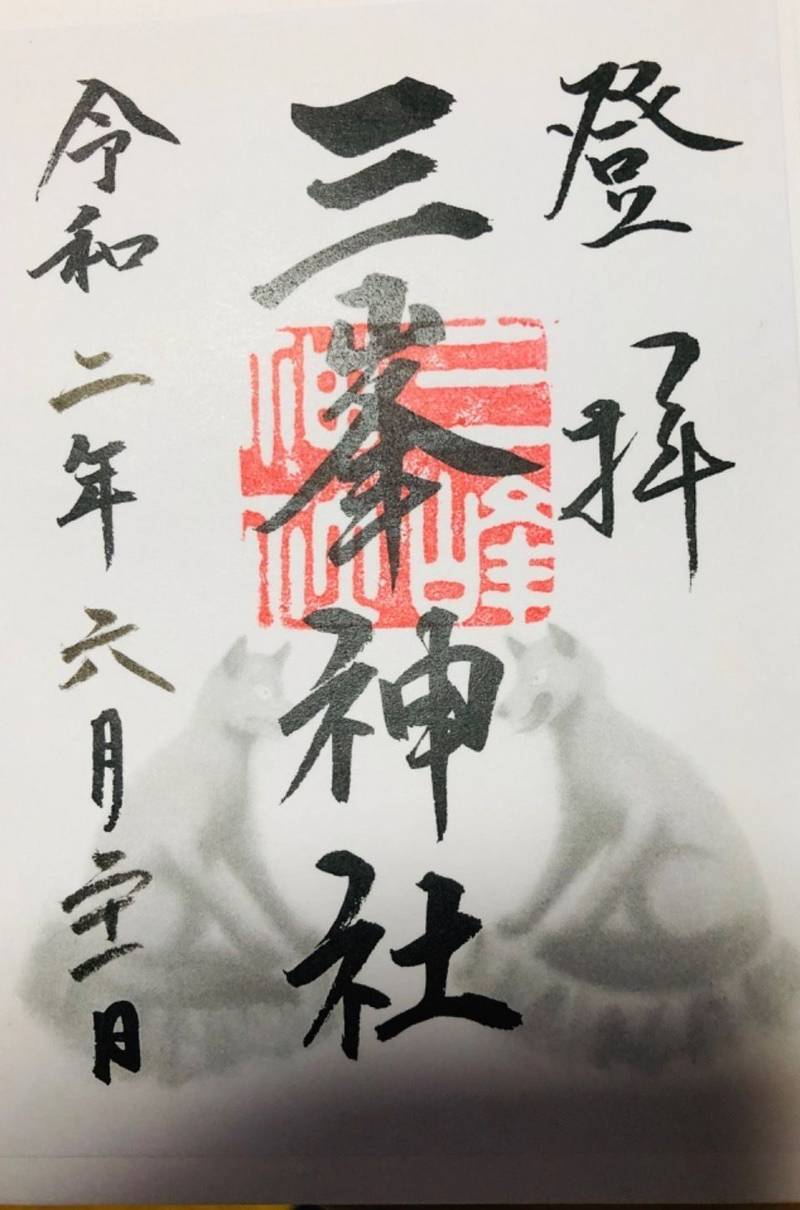 登拝
三峯神社
三峰
神社
令和二年六月二十一日